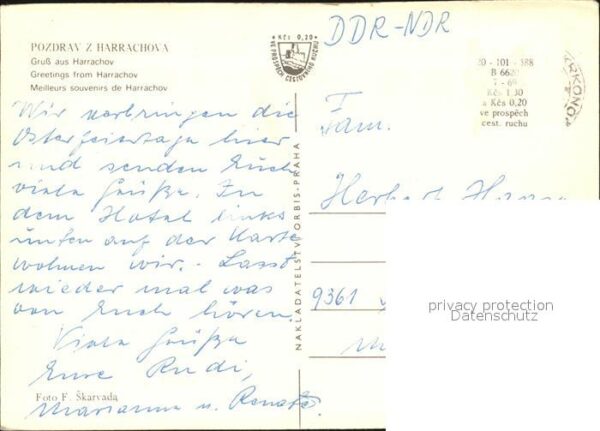 POZDRAV Z HARRACHOVA
Gruß aus Harrachov
Greetings from Harrachov
Meilleurs souvenirs de Harrachov
Wir verbringen die
Osterfeiertage hier
und senden Euch
viele Grüße. In
dem Hotel links
unten auf der Karte
wohnen wir. - Lasst
wieder mal was
von Euch hören.
Viele Grüße
Eure Rudi,
Marianne u. Renate.
Foto F. Škarvada
NAKLADATELSTVÍ ORBIS-PRAHA
• Kčs 0,20 •
VE PROSPĚCH CESTOVNÍHO RUCHU
DDR-NDR
20 - 101 - 388
B 6620
7 - 69
Kčs 1,30
a Kčs 0,20
ve prospěch
cest. ruchu
Fam.
Herbert
9361
privacy protection
Datenschutz